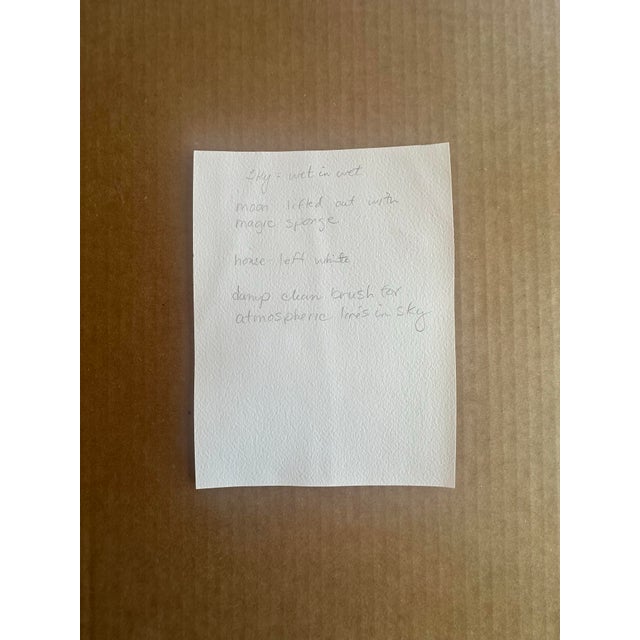 Sky = wet in wet
moon lifted out with
magic sponge
house left white
damp clean brush for
atmospheric lines in sky